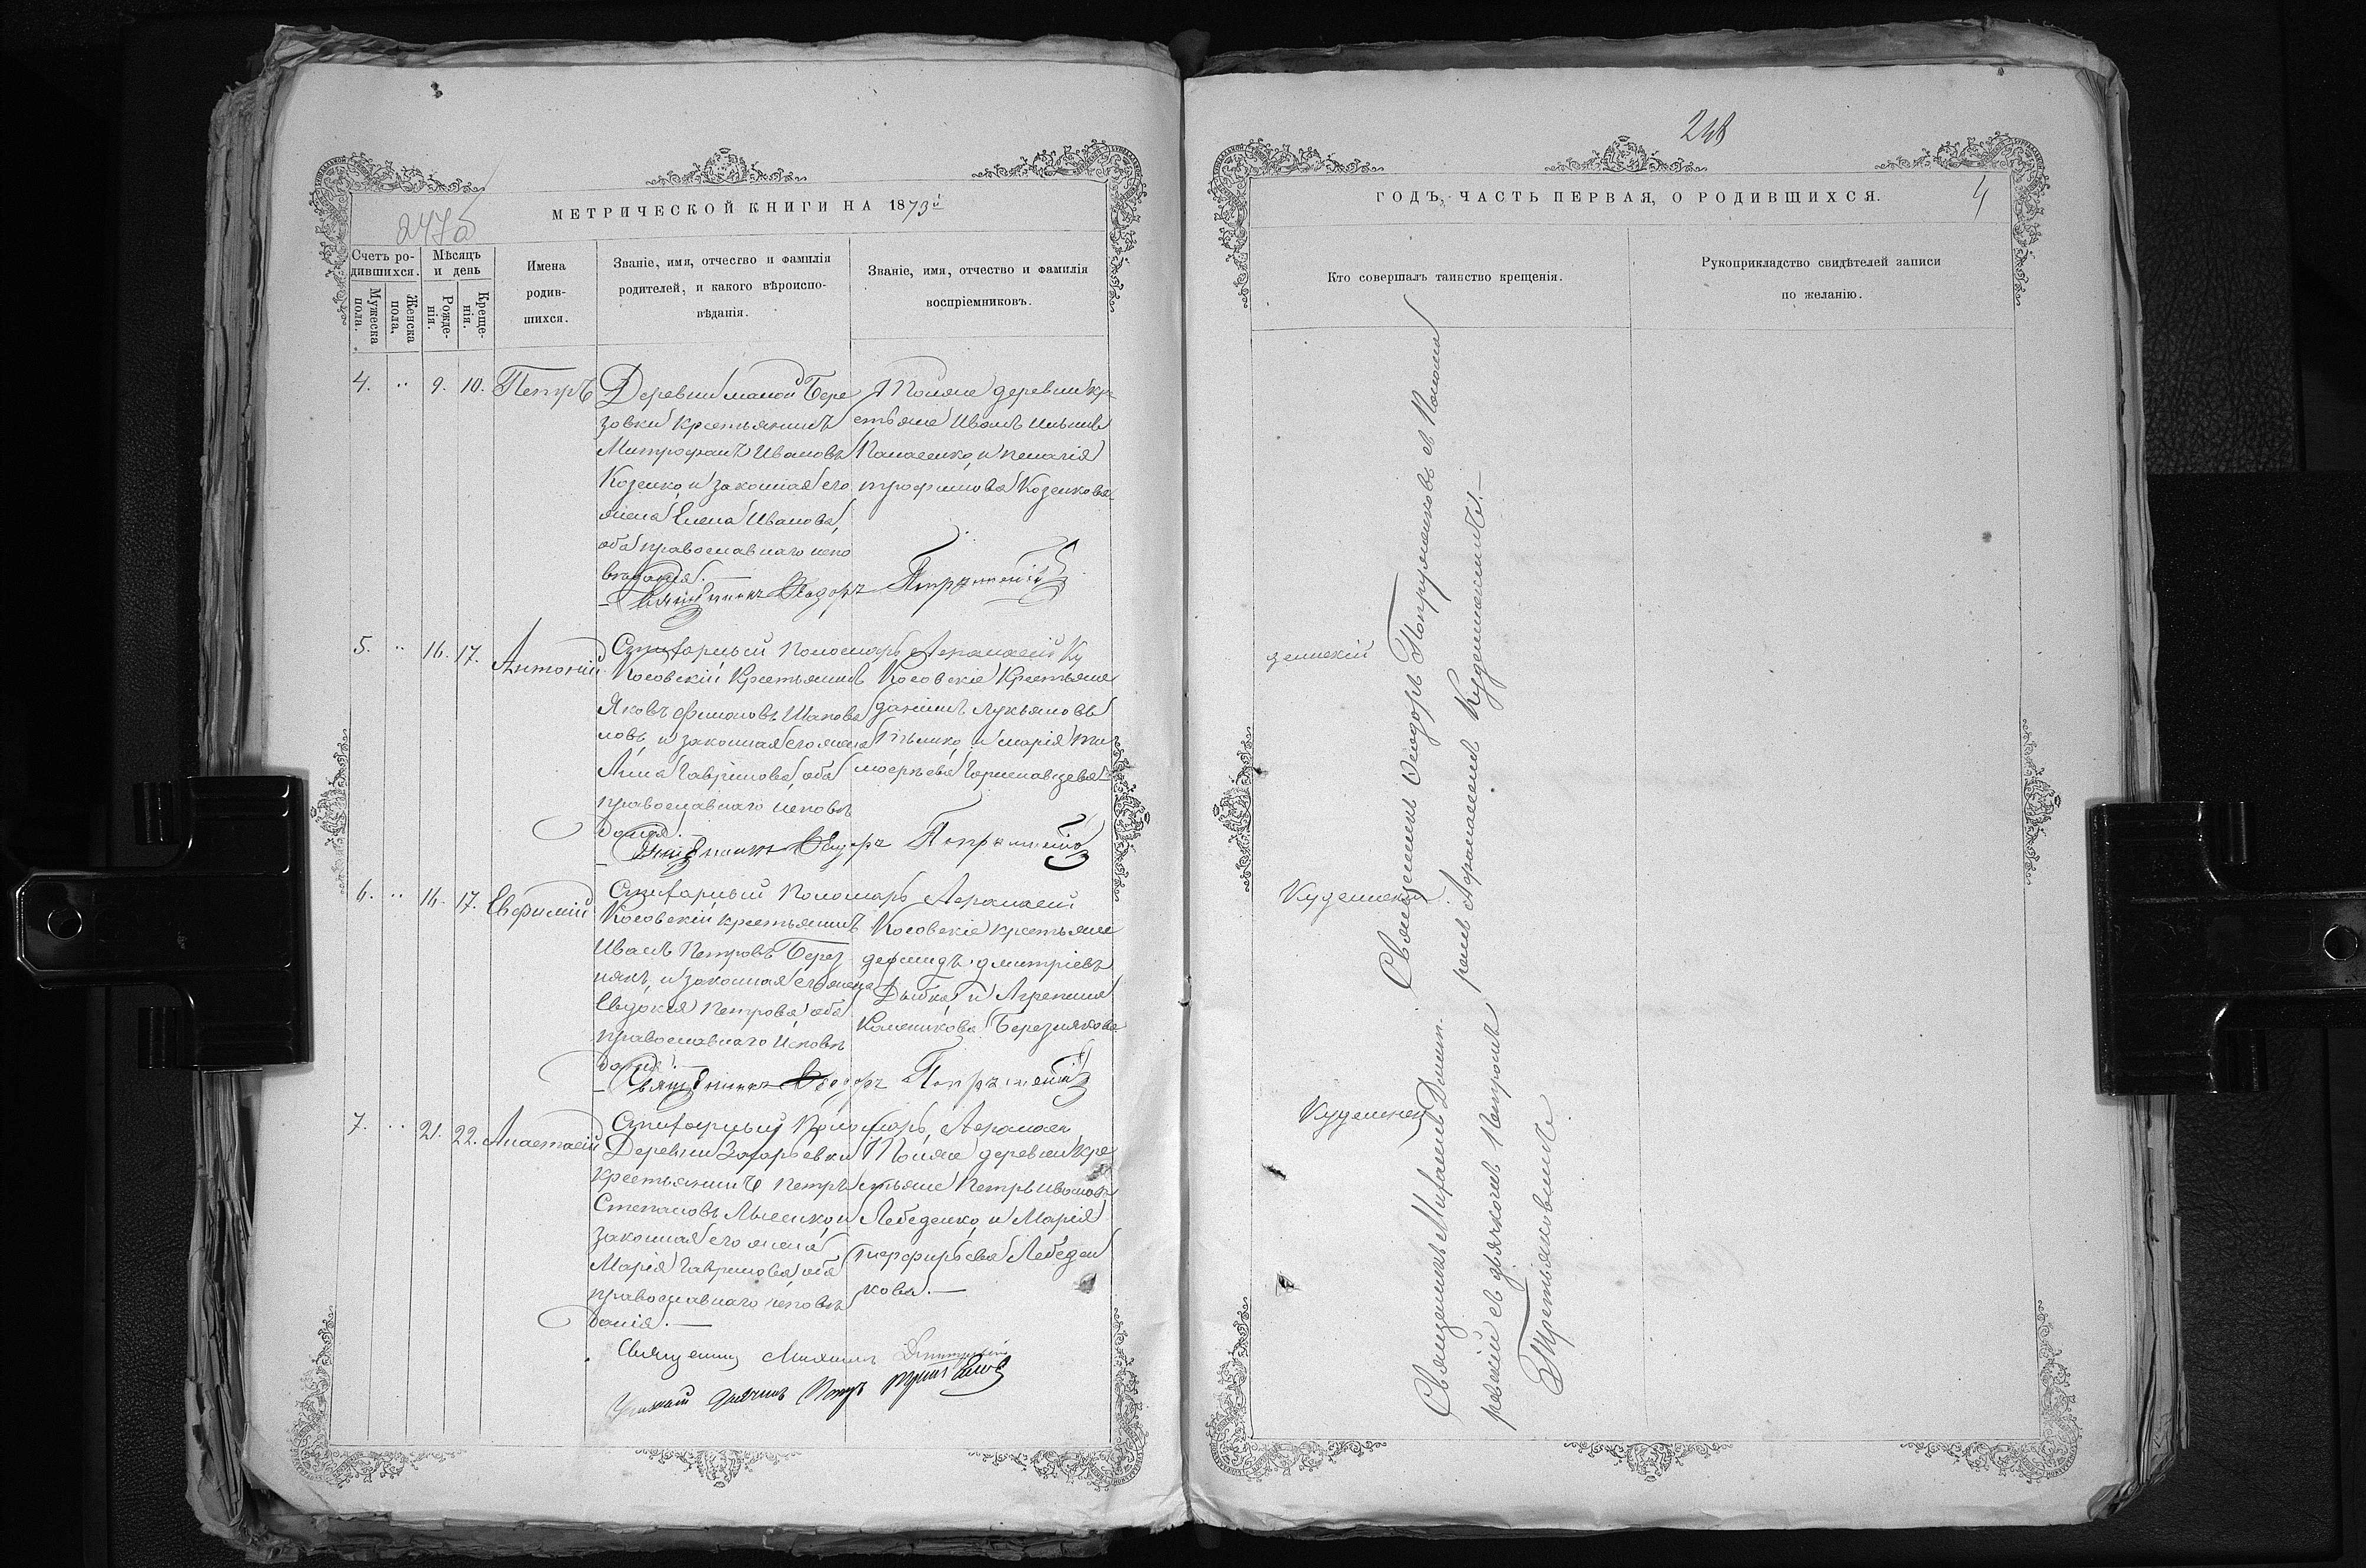 МЕТРИЧЕСКОЙ КНИГИ НА 1873й
247б
Счетъ ро-
дившихся.
Мужеска
пола.
Женска
пола.
Мѣсяцъ
и день
Рожде-
нія.
Креще-
нія.
Имена
родив-
шихся.
Званіе, имя, отчество и фамилія
родителей, и какого вѣроиспо-
вѣданія.
Званіе, имя, отчество и фамилія
воспріемниковъ.
4. 9. 10. Петръ
Деревни малой Бере
зовки крестьянинъ
Митрофанъ Ивановъ
Козенко, и законная его
жена Елена Иванова,
оба православнаго испо
вѣданія.
Тояже деревни кре
стьяне Иванъ
и Пелагія
трофимова Козенкова
Священникъ Ѳеодоръ
5. 16. 17. Антоній
Пономарь Афанасій Ку
Косовскій крестьянинъ
Яковъ Филиповъ Шапова
ловъ, и законная его жена
Анна Гаврилова, оба
православнаго исповѣ
данія.
Косовскіе крестьяне
Даніилъ Лукьяновъ
и Марія Ти
моѳеева
Священникъ Ѳеодоръ
6. 16. 17. Евфимій
Пономарь Афанасій
Косовскій крестьянинъ
Иванъ Петровъ Берез
някъ, и законная его жена
Евдокія Петрова, оба
православнаго исповѣ
данія.
Косовскіе крестьяне
Демидъ Дмитріевъ
Дыбка, и Агрепина
Березнякова
Священникъ Ѳеодоръ
7. 21. 22. Анастасій
Пономарь Афанасій
Деревни Захарьевки
крестьянинъ Петръ
Степановъ Лысенко, и
законная его жена
Марія Гаврилова, оба
православнаго исповѣ
данія.
Тояже деревни кре
стьяне Петръ Ивановъ
Лебеденко, и Марія
порфирьева Лебеден
кова.
Священникъ Михаилъ
248
ГОДЪ, ЧАСТЬ ПЕРВАЯ, О РОДИВШИХСЯ.
4
Кто совершалъ таинство крещенія.
Рукоприкладство свидѣтелей записи
по желанію.
Священникъ Ѳеодоръ съ Понома
ремъ Афанасіемъ
Священникъ Михаилъ Димит
ревскій съ дьячкомъ Петромъ
Третьяковымъ